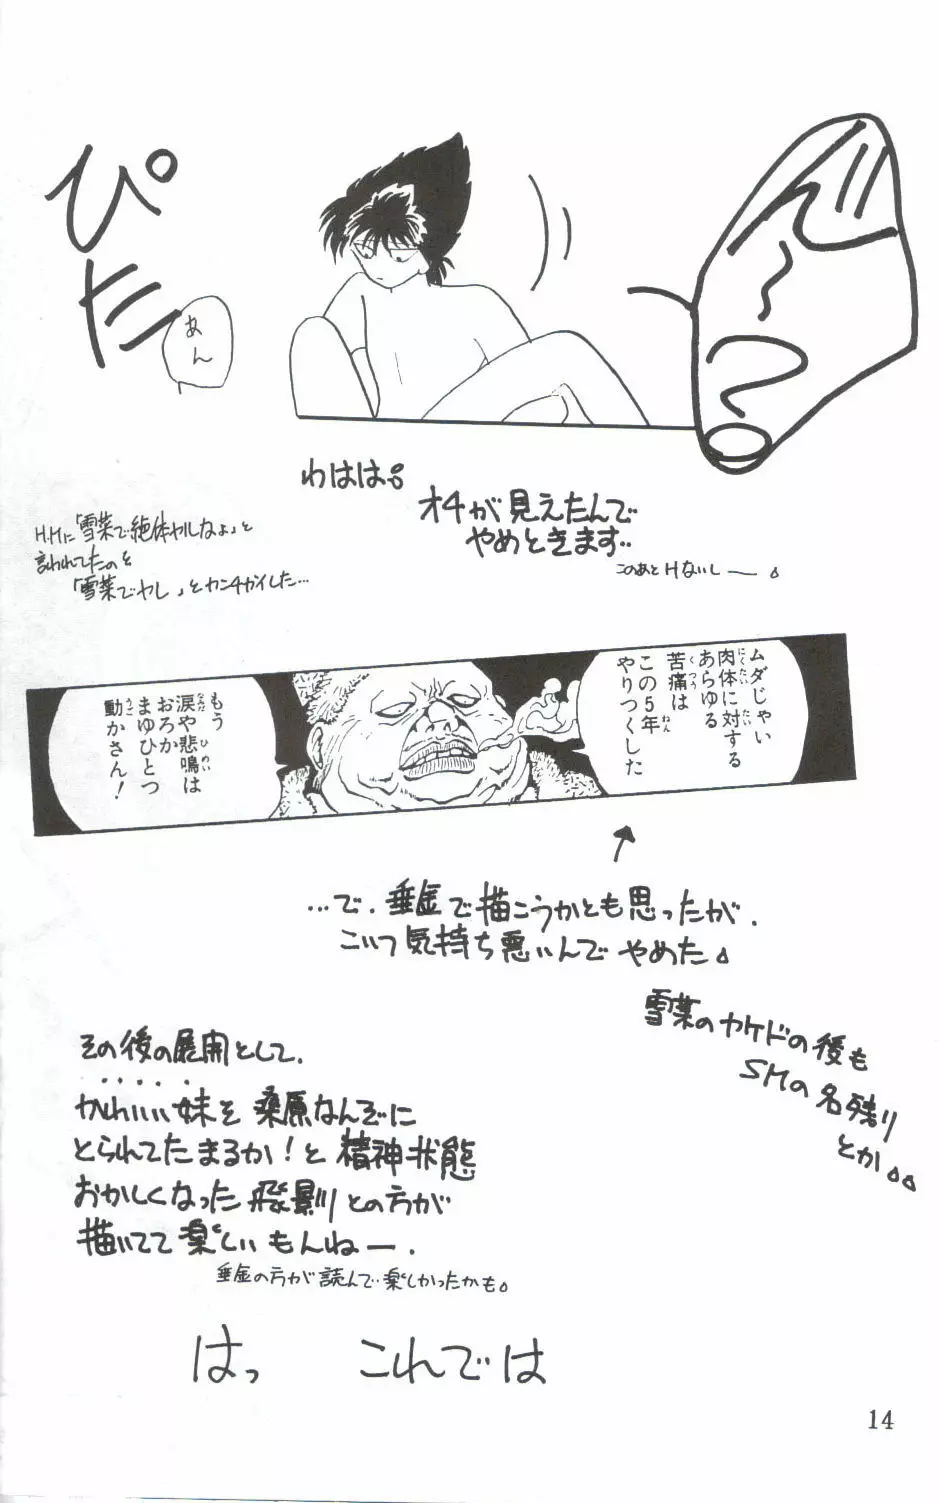 ぴた
あん
わはは。
オチが見えたんで
やめときます‥
このあとHないしー。
H.Hに「雪菜で絶体ヤルなよ」と
言われてたのを
「雪菜でヤレ」とカンチガイした…
ムダじゃい
肉体に対する
あらゆる
苦痛は
この5年
やりつくした
もう
涙や悲鳴は
おろか
まゆひとつ
動かさん！
…で、垂金で描こうかとも思ったが、
こいつ気持ち悪いんでやめた。
雪菜のヤケドの後も
SMの名残り
とか。。
その後の展開として、
かわいい妹を桑原なんぞに
とられてたまるか！と精神状態
おかしくなった飛影との方が
描いてて楽しいもんねー．
垂金の方が読んで楽しかったかも。
はっ これでは
14